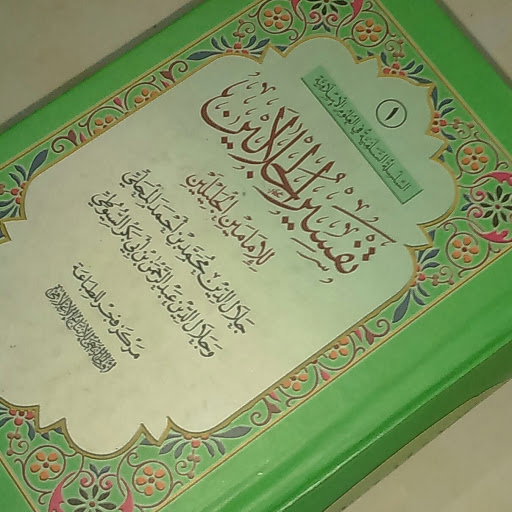 السلسلة السلفية في العلوم الإسلامية
١
تفسير الجلالين
للإمامين الجليلين
جلال الدين محمد بن أحمد المحلي
وجلال الدين عبد الرحمن بن أبي بكر السيوطي
مركز فجر للطباعة